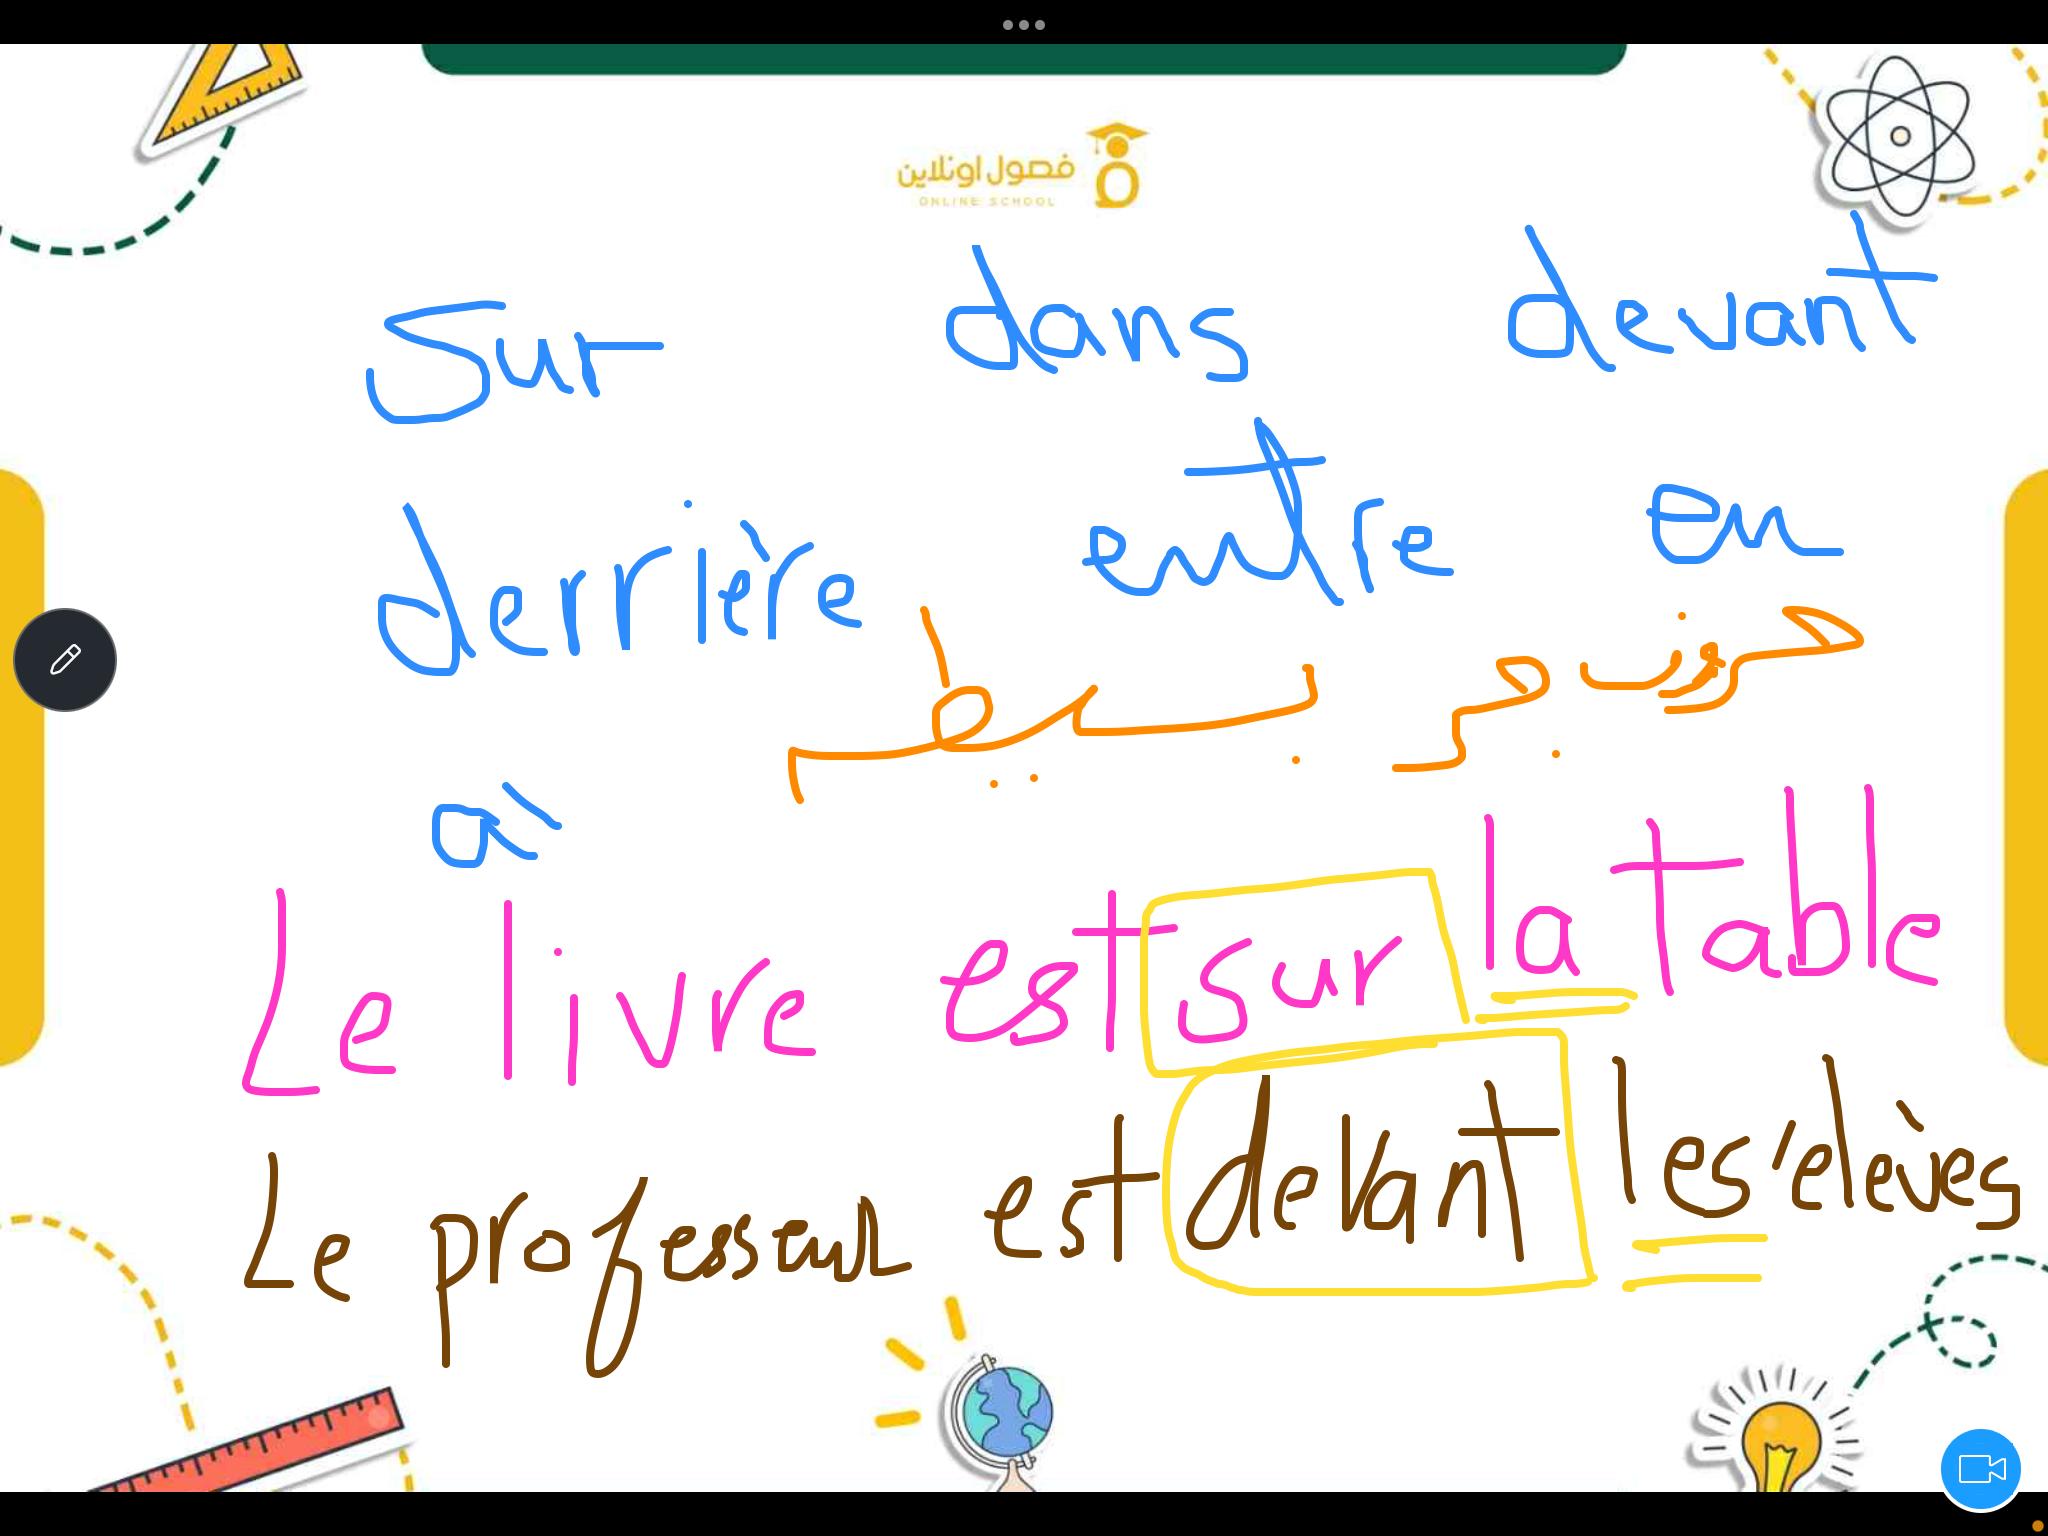 فصول اونلاين
ONLINE SCHOOL
Sur dans devant
derrière entre en
حروف جر بسيط
à
Le livre est sur la table
Le professeur est devant les élèves